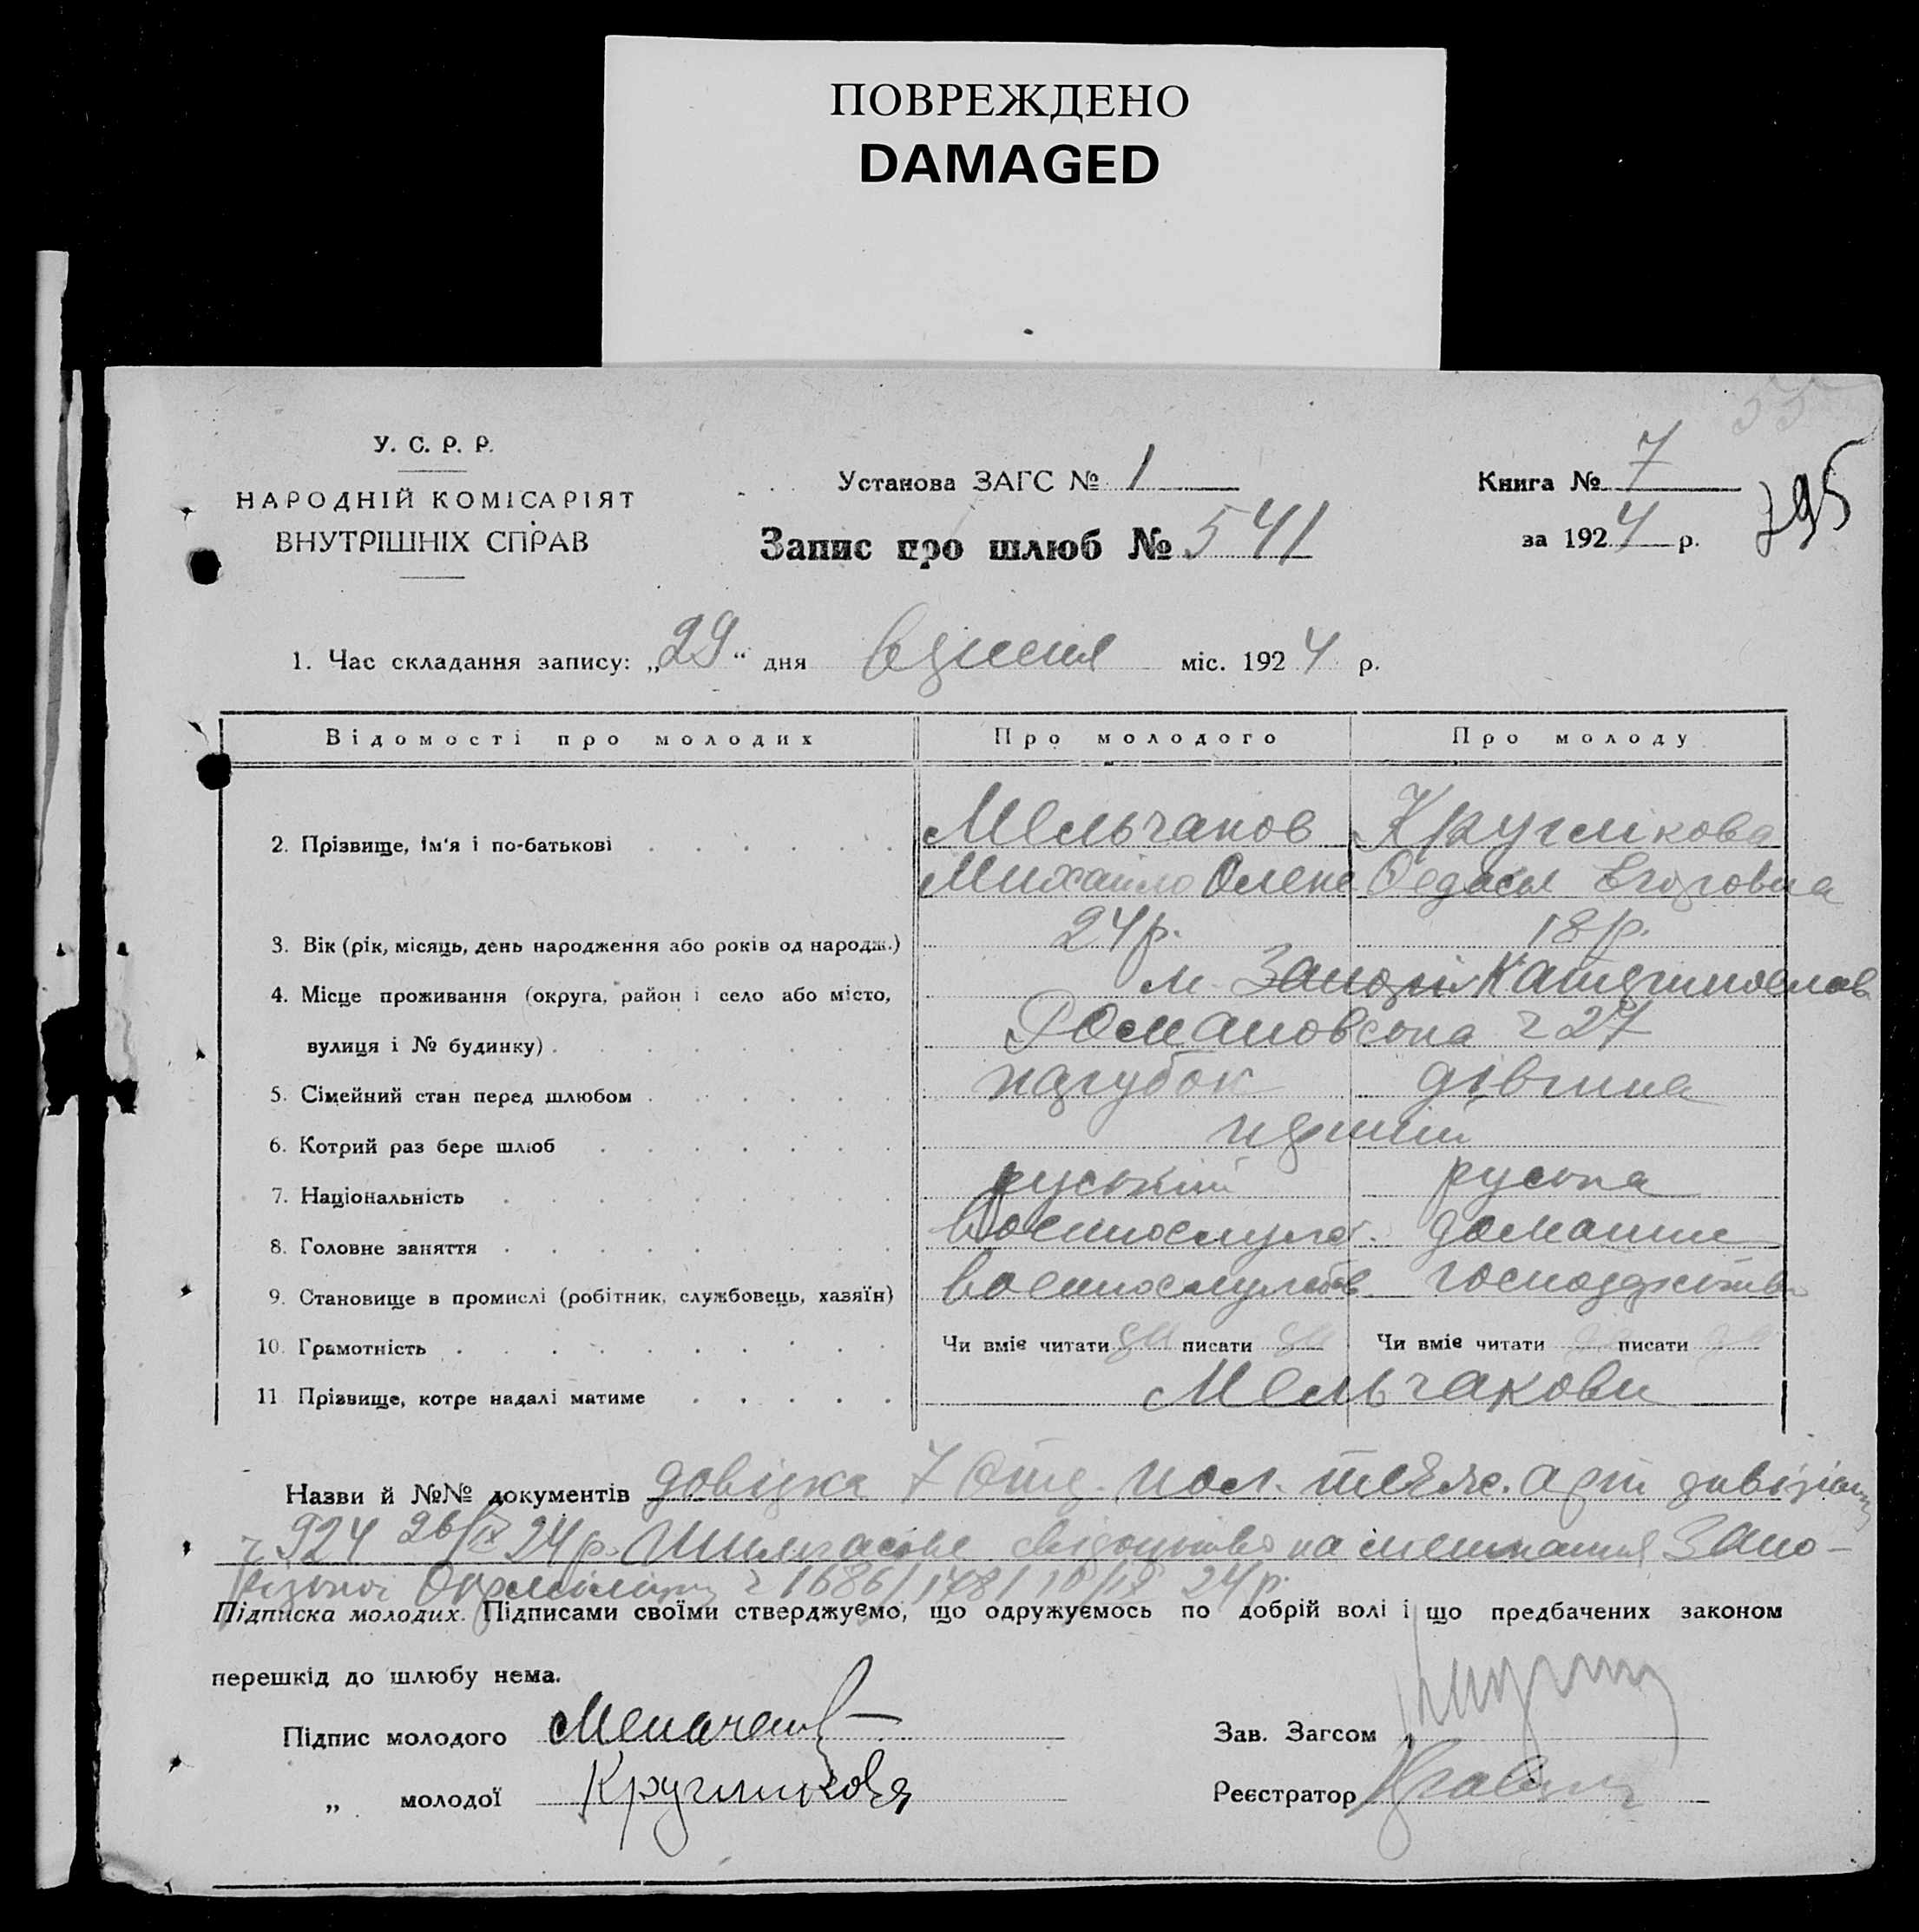 ПОВРЕЖДЕНО
DAMAGED
55
У. С. Р. Р.
НАРОДНІЙ КОМІСАРІЯТ
ВНУТРІШНІХ СПРАВ
Установа ЗАГС № 1
Запис про шлюб № 541
Книга № 7
за 1924 р.
795
1. Час складання запису: „29“ дня вересня міс. 1924 р.
Відомості про молодих Про молодого Про молоду
2. Прізвище, ім'я і по-батькові Мельчаков Круглікова
Михайло Олекс Федосія Егоровна
3. Вік (рік, місяць, день народження або років од народж.) 24 р. 18 р.
4. Місце проживання (округа, район і село або місто, м. Катеринослав
вулиця і № будинку) Романовська ч 27
5. Сімейний стан перед шлюбом парубок дівчина
6. Котрий раз бере шлюб перший
7. Національність руський руська
8. Головне заняття военнослуж. домашнє
9. Становище в промислі (робітник, службовець, хазяїн) господарство
10. Грамотність Чи вміє читати писати Чи вміє читати писати
11. Прізвище, котре надалі матиме Мельчакови
Назви й №№ документів довідка 7 Отд. пол. тяж. арт дивізіону
ч 924 26/IX 24 р. свідоцтво на мешкання Запо-
різької ч 1686/1781 24 р.
Підписка молодих. Підписами своїми стверджуємо, що одружуємось по добрій волі і що предбачених законом
перешкід до шлюбу нема.
Підпис молодого
Зав. Загсом
„ молодої Кругликова
Реєстратор